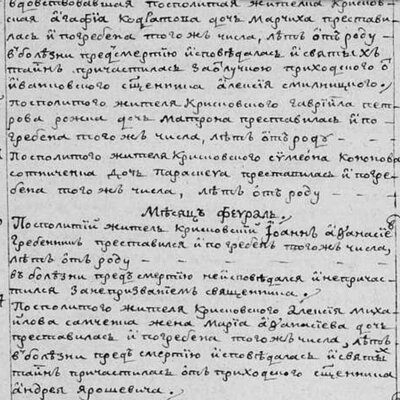 вдовствовавшая посполитая жителка Криснов-
ская Агафіа Кодратова дочь Марчиха престави-
лась и погребена того жъ числа, лѣтъ ѿ роду -
въ болѣзни предъ смертію исповѣдалась и святыхъ
таинъ причастилась за ѿлучкою приходского ѿ
ивановского священника Алексіа Смилницкого.
посполитого жителя Крисновского Гаврійла пет-
рова рожна дочь Матрона преставилась и по-
гребена того жъ числа, лѣтъ ѿ роду - - -
Посполитого жителя Крисновского Сѵмеона Кононова
сотниченка дочь Параскева преставилась и погре-
бена того жъ числа, лѣтъ ѿ роду - - -
Мѣсяць феураль.
Посполитій житель Крисновскій Іоаннъ Афанасіевъ
Гребенникъ преставился и погребенъ того жъ числа,
лѣтъ ѿ роду - - -
въ болѣзни предъ смертію не исповѣдался и не причас-
тился за непризваніемъ священника.
Посполитого жителя Крисновского Алексіа Миха-
йлова самченка жена Маріа Афанасіева дочь
преставилась и погребена того жъ числа, лѣтъ -
въ болѣзни предъ смертію исповѣдалась и святыхъ
таинъ причастилась ѿ приходского священника
Андрея Ярошевича.